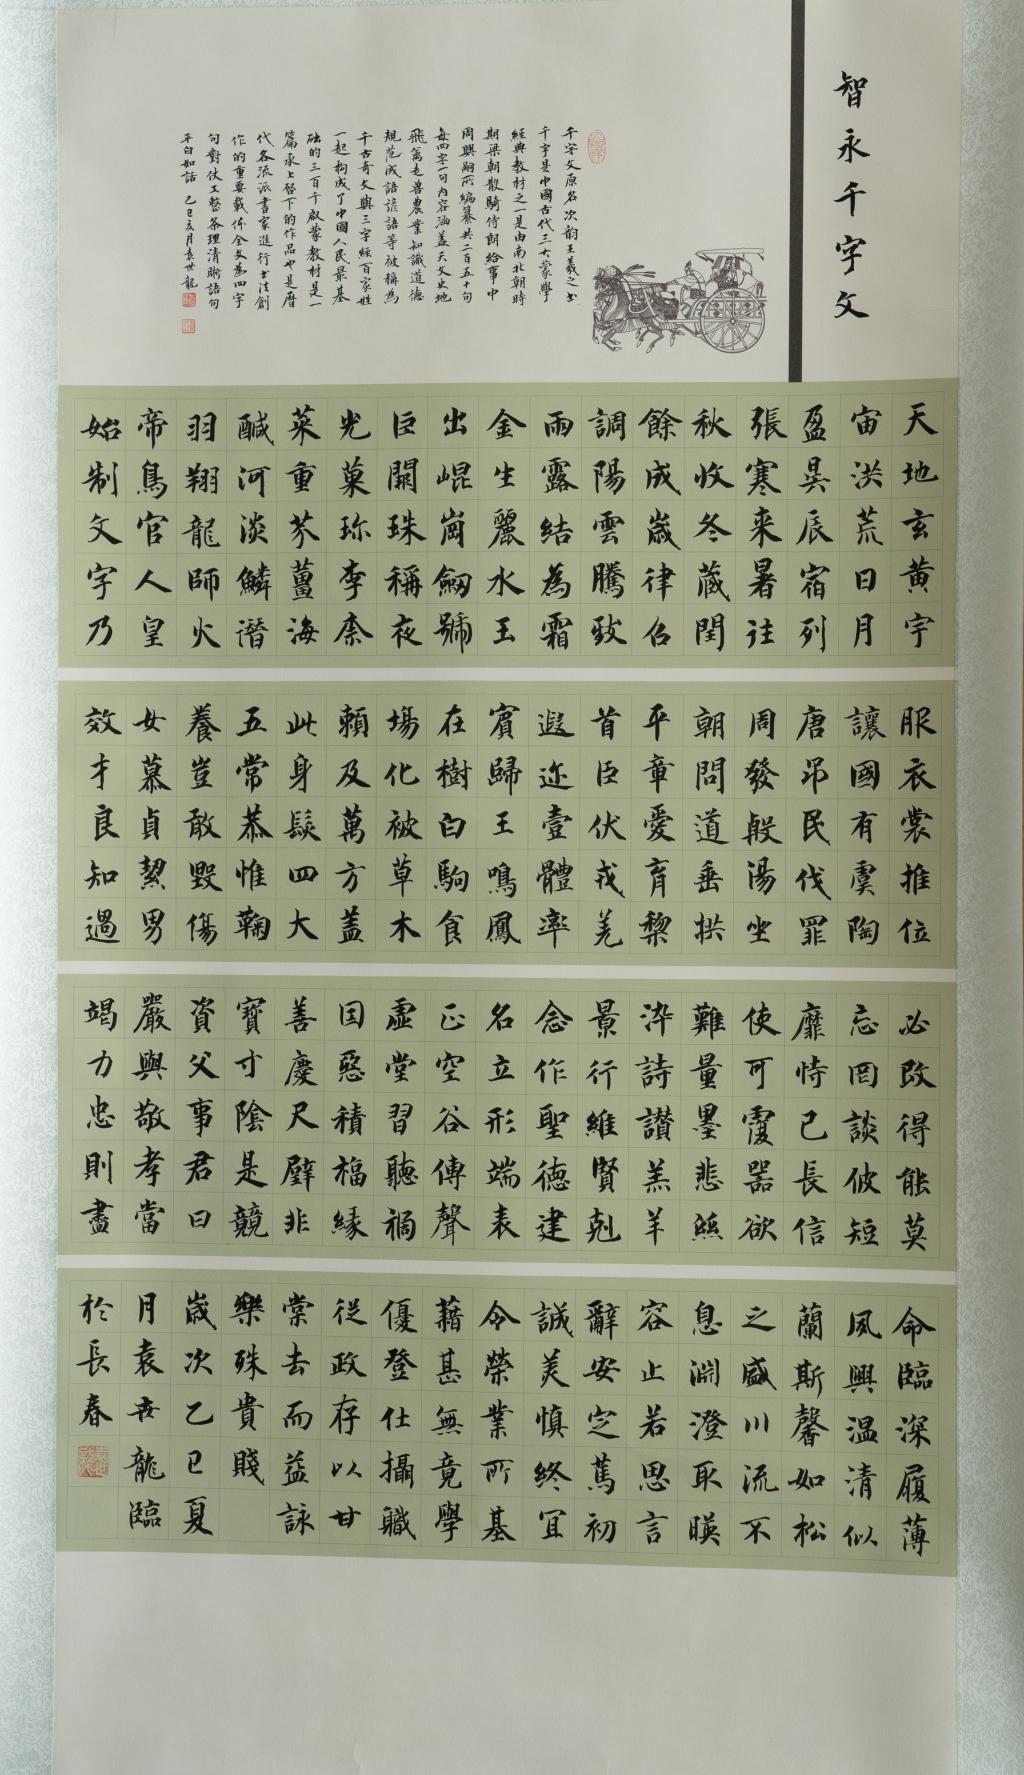 智永千字文
千字文原名次韵王羲之书
千字是中國古代三大蒙學
經典教材之一是由南北朝時
期梁朝散騎侍郎給事中
周興嗣所編纂共二百五十句
每四字一句内容涵盖天文史地
飛禽走兽農業知識道德
規范成語諺語等被稱為
千古奇文與三字經百家姓
一起构成了中國人民最基
础的三百千啟蒙教材是一
篇承上啓下的作品也是曆
代各流派書家進行书法創
作的重要載体全文為四字
句對仗工整条理清晰語句
平白如話 乙巳亥月袁世龍
天地玄黄宇
宙洪荒日月
盈昃辰宿列
張寒来暑往
秋收冬蔵閏
餘成歳律召
調陽雲騰致
雨露結為霜
金生麗水玉
出崐崗劒號
巨闕珠稱夜
光菓珎李柰
菜重芥薑海
醎河淡鱗潛
羽翔龍師火
帝鳥官人皇
始制文字乃
服衣裳推位
讓國有虞陶
唐弔民伐罪
周發殷湯坐
朝問道垂拱
平章愛育黎
首臣伏戎羌
遐迩壹體率
賓歸王鳴鳳
在樹白駒食
場化被草木
頼及萬方盖
此身髮四大
五常恭惟鞠
養豈敢毀傷
女慕貞絜男
效才良知過
必改得能莫
忘罔談彼短
靡恃己長信
使可覆器欲
難量墨悲絲
淬詩讃羔羊
景行維賢剋
念作聖德建
名立形端表
正空谷傳聲
虚堂習聽禍
因惡積福緣
善慶尺璧非
寶寸陰是競
資父事君曰
嚴與敬孝當
竭力忠則盡
命臨深履薄
夙興温清似
蘭斯馨如松
之盛川流不
息淵澄取暎
容止若思言
辭安定篤初
誠美慎終宜
令榮業所基
藉甚無竟學
優登仕攝職
從政存以甘
棠去而益詠
樂殊貴賤
歲次乙巳夏
月袁世龍臨
於長春